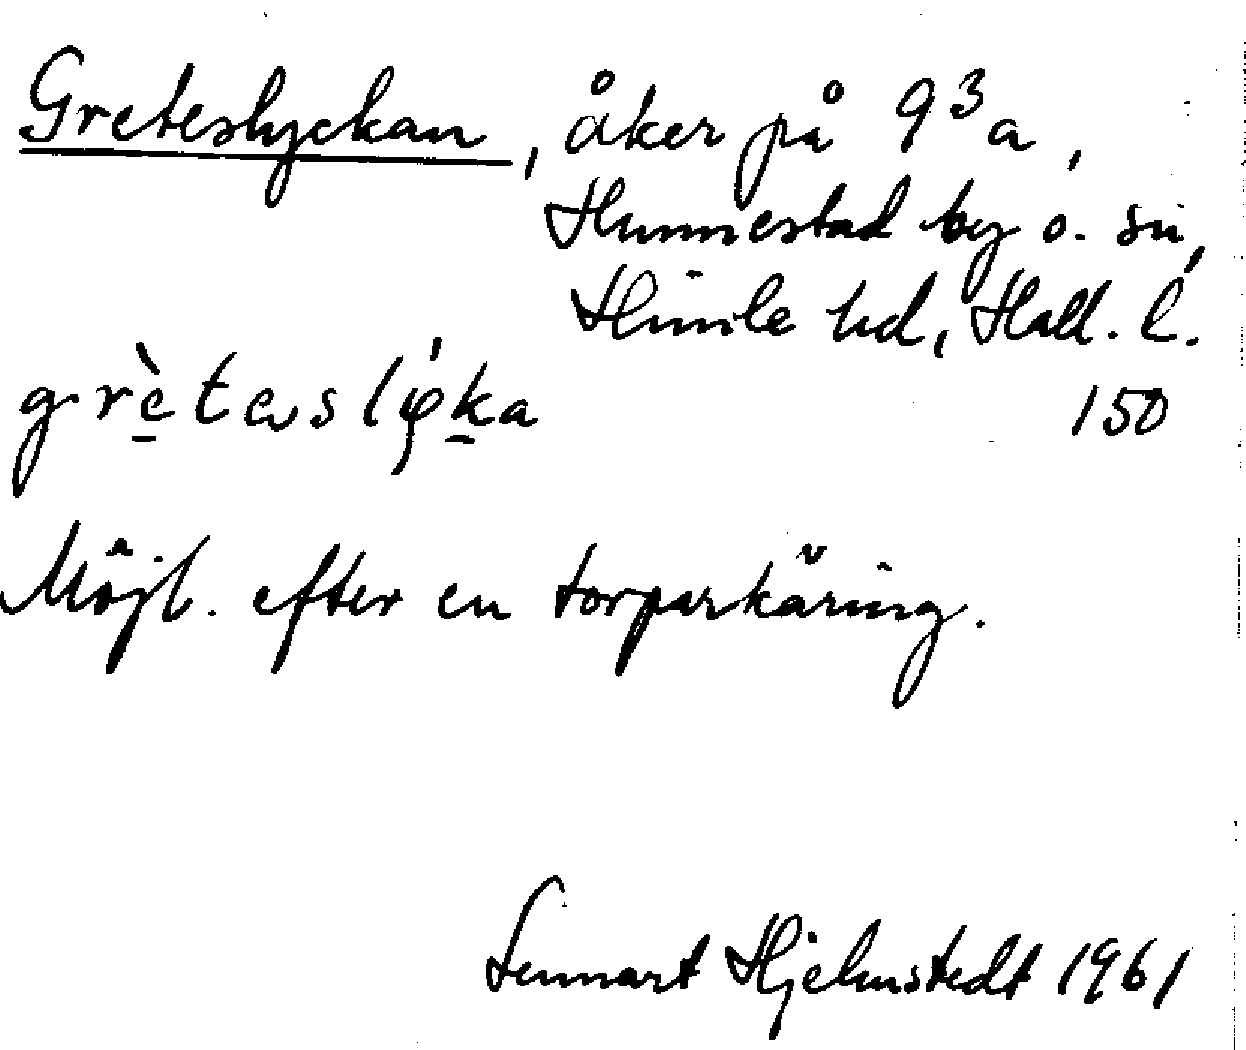 Greteslyckan, åker på 9³a,
Hunnestad by o. sn,
Himle hd, Hall. l.
150
Möjl. efter en torparkäring.
Lennart Hjelmstedt 1961